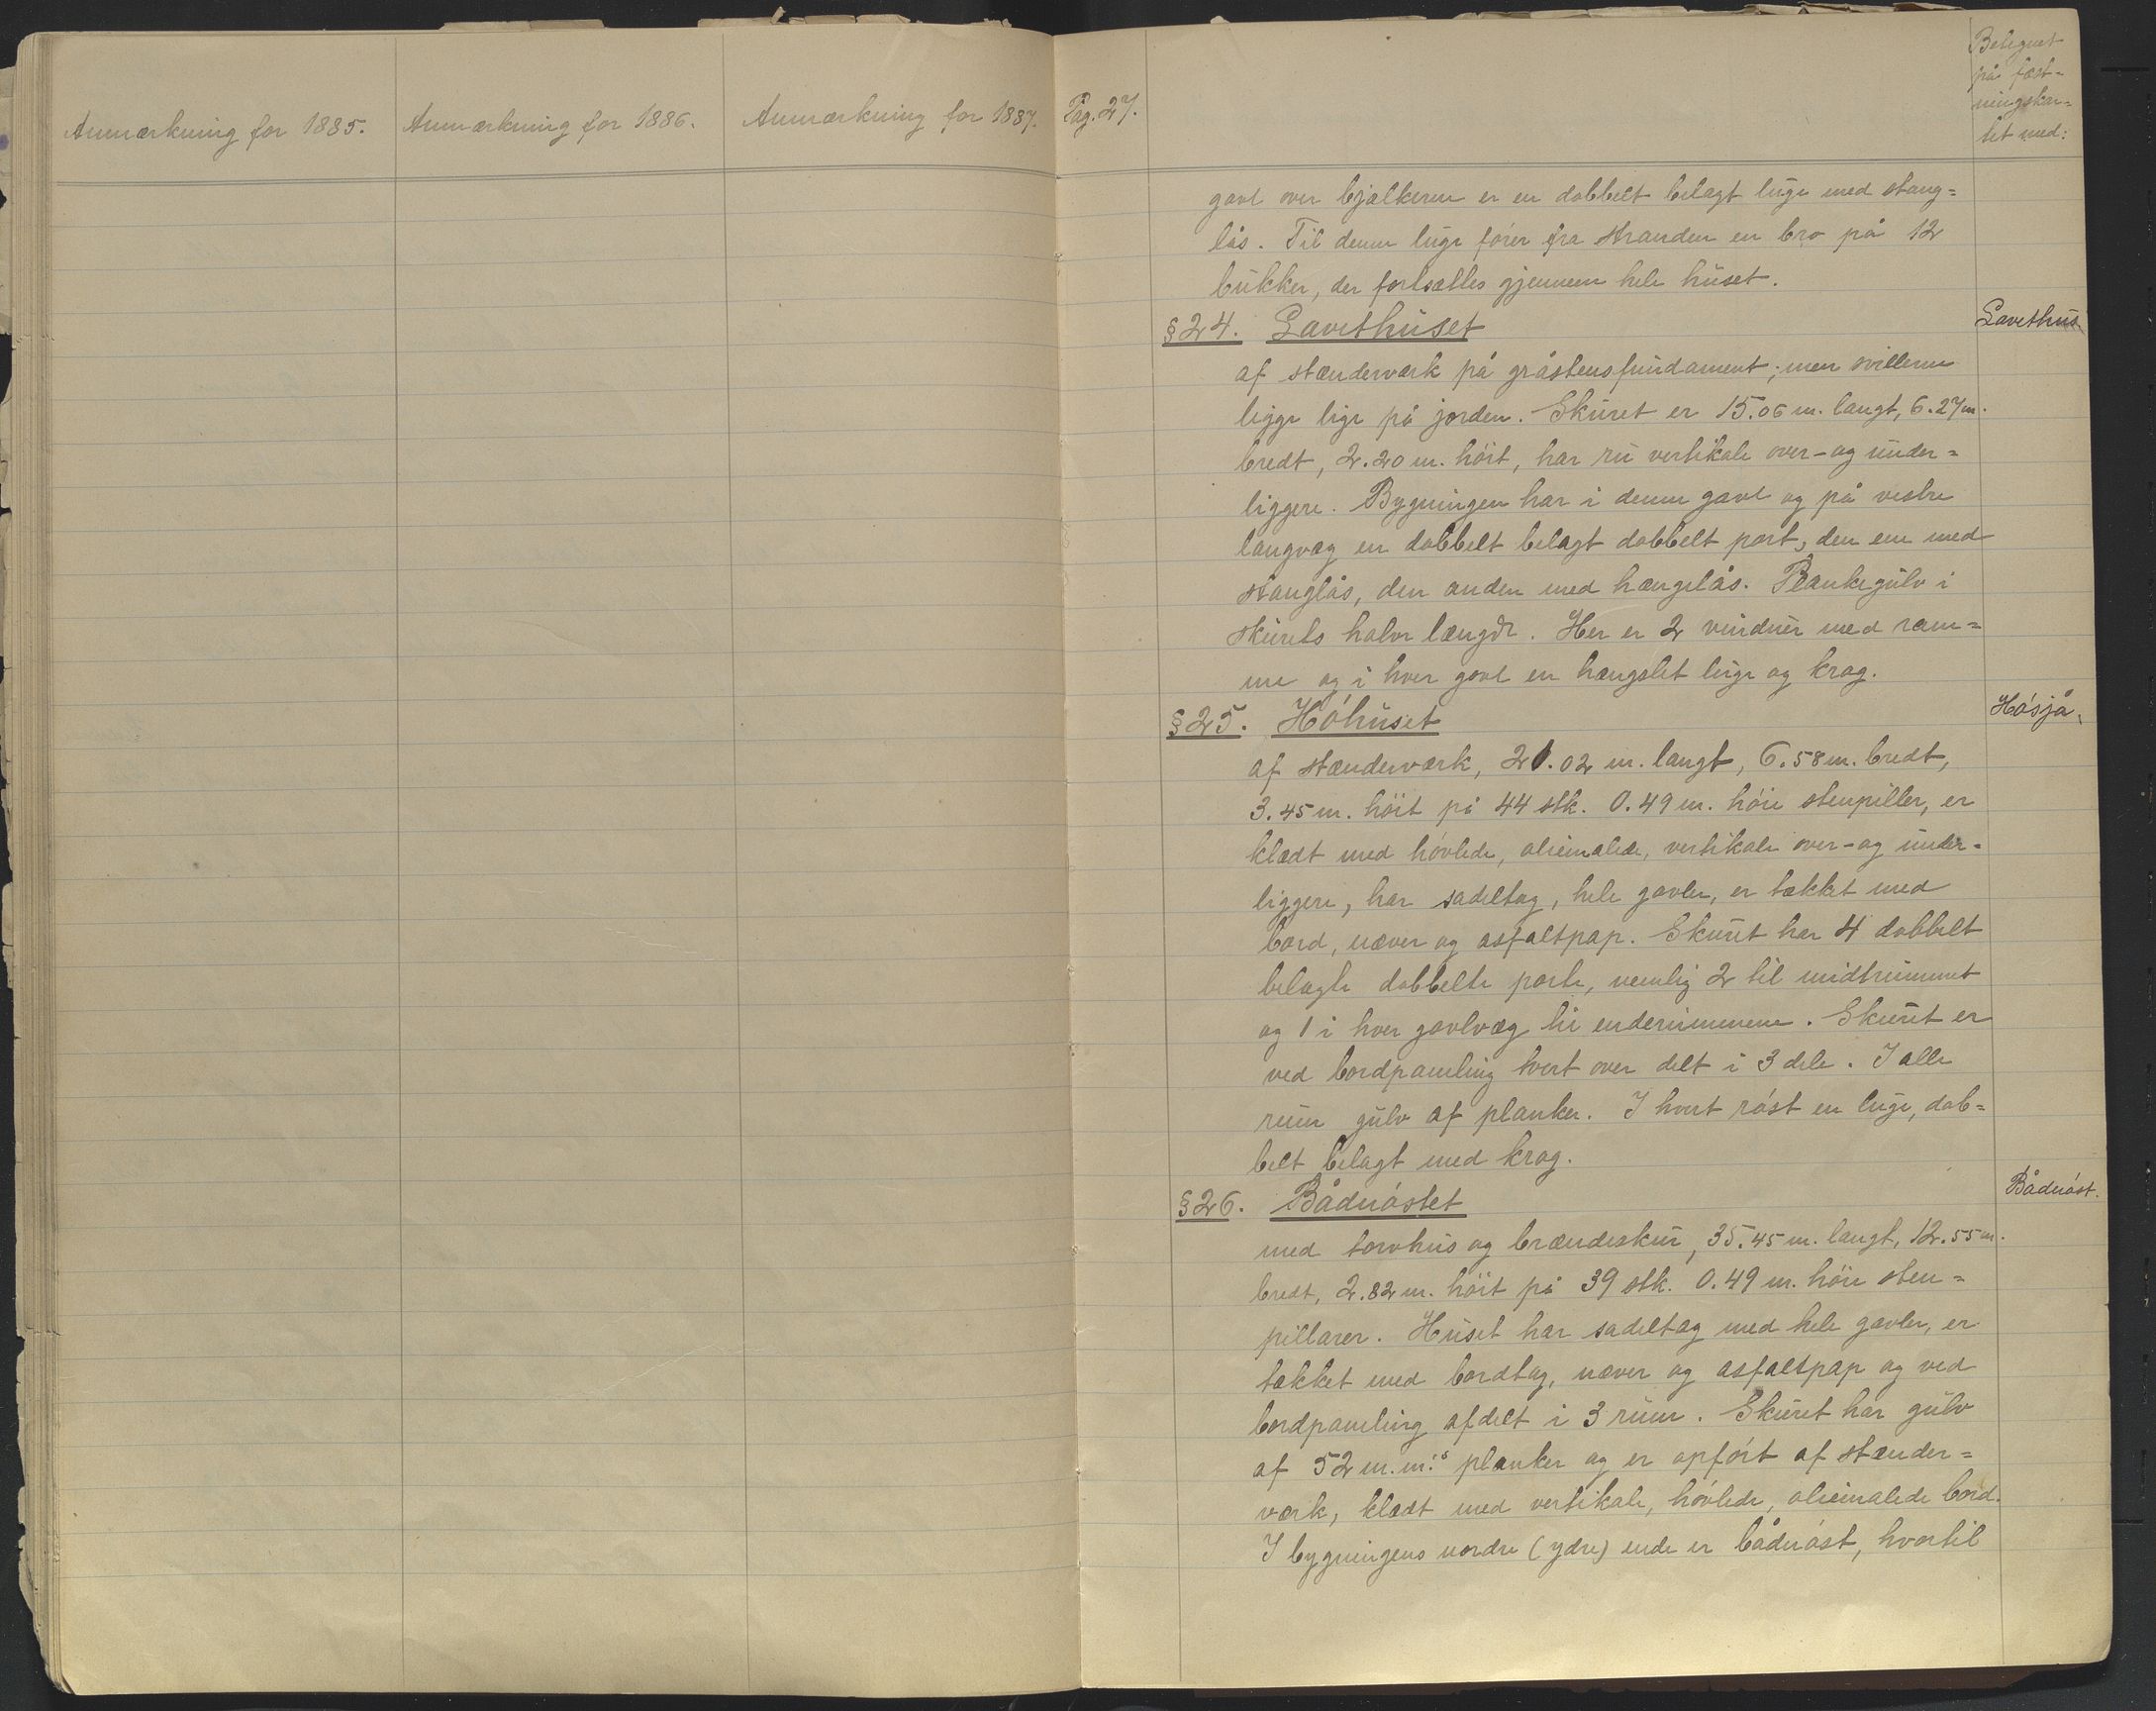 Anmærkning for 1885.
Anmærkning for 1886.
Anmærkning for 1887.
Pag. 27.
Betegnet
på fæst-
ningskar-
tet med:
gavl over bjælkerne er en dobbelt belagt luge med stang=
lås. Til denne luge fører fra stranden en bro på 12
bukker, der fortsættes gjennem hele huset.
§24. Lavethuset
Lavethus.
af stænderværk på gråstensfundament; men svillerne
ligge lige på jorden. Skuret er 15.06 m. langt, 6.27 m.
bredt, 2.20 m. høit, har ru vertikale over- og under=
liggere. Bygningen har i denne gavl og på vestre
langvæg en dobbelt belagt dobbelt port, den ene med
stanglås, den anden med hængelås. Plankegulv i
skurets halve længde. Her er 2 vinduer med ram=
me og i hver gavl en hængslet luge og krag.
§25. Hóhuset
Hósjå.
af stænderværk, 21.02 m. langt, 6.58 m. bredt,
3.45 m. høit på 44 stk. 0.49 m. høie stenpiller, er
klædt med høvlede, oliemalede, vertikale over- og under=
liggere, har sadeltag, hele gavler, er tækket med
bord, næver og asfaltpap. Skuret har 4 dobbelt
belagte dobbelte porte, nemlig 2 til midtrummet
og 1 i hver gavlvæg til enderummene. Skuret er
ved bordpaneling tvert over delt i 3 dele. I alle
rum gulv af planker. I hvert røst en luge, dob=
belt belagt med krag.
§26. Bådnóstet
Bådnóst.
med torvhus og brændeskur, 35.45 m. langt, 12.55 m.
bredt, 2.82 m. høit på 39 stk. 0.49 m. høie sten=
pillarer. Huset har sadeltag med hele gavler, er
tækket med bordtag, næver og asfaltpap og ved
bordpaneling afdelt i 3 rum. Skuret har gulv
af 52 m.m.s planker og er opført af stænder=
værk, klædt med vertikale, høvlede, oliemalede bord.
I bygningens nordre (ydre) ende er bådnóst, hvortil